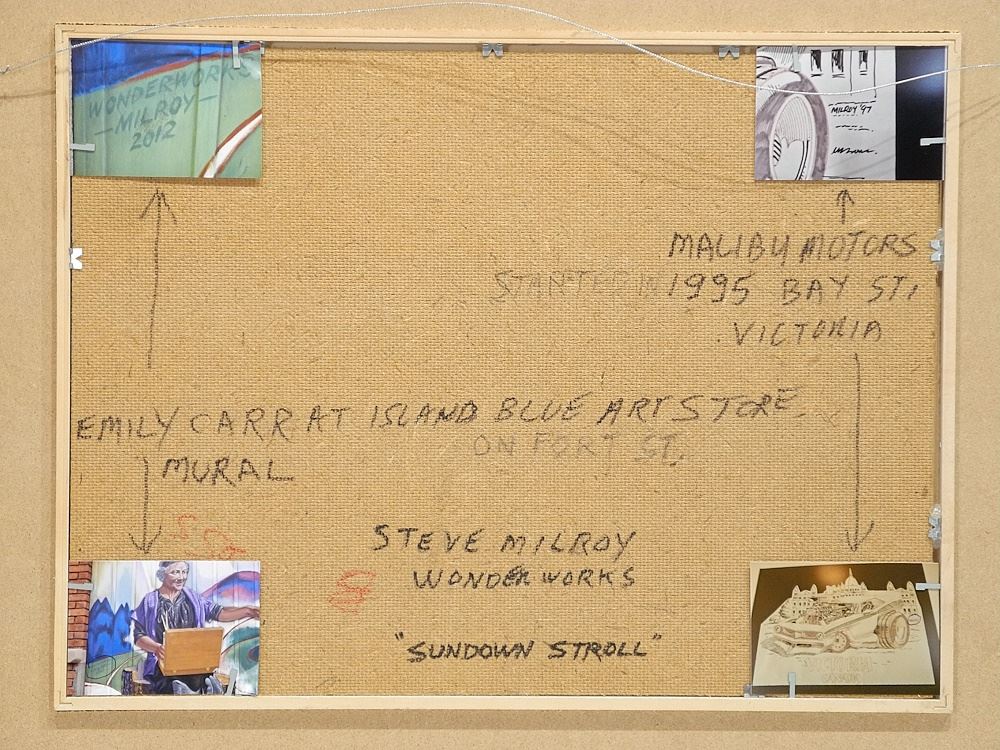 WONDERWORKS
—MILROY—
2012
MILROY '97
MALIBU MOTORS
STARTED IN 1995 BAY ST,
VICTORIA
EMILY CARR AT ISLAND BLUE ART STORE
ON FORT ST.
MURAL
STEVE MILROY
WONDERWORKS
"SUNDOWN STROLL"